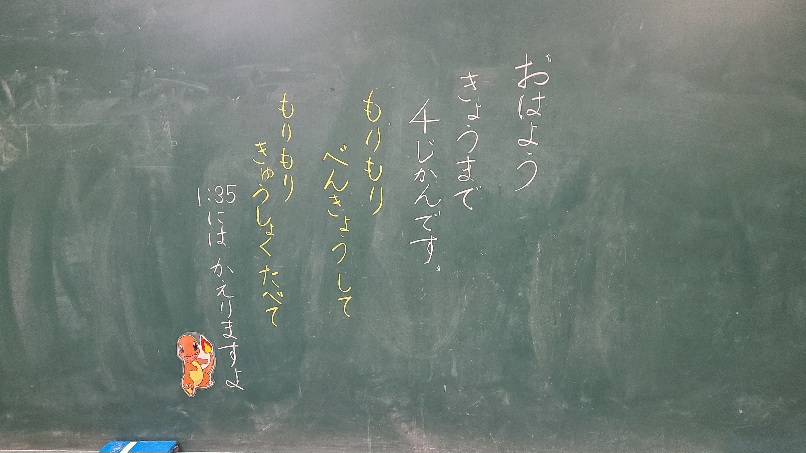 おはよう
きょうまで
4じかんです。
もりもり
べんきょうして
もりもり
きゅうしょくたべて
1:35にはかえりますよ